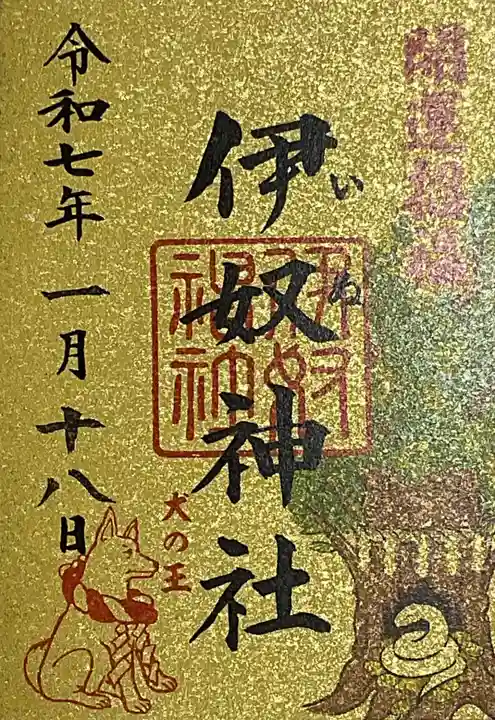 開運招福
伊奴神社
いぬ
犬の王
令和七年一月十八日